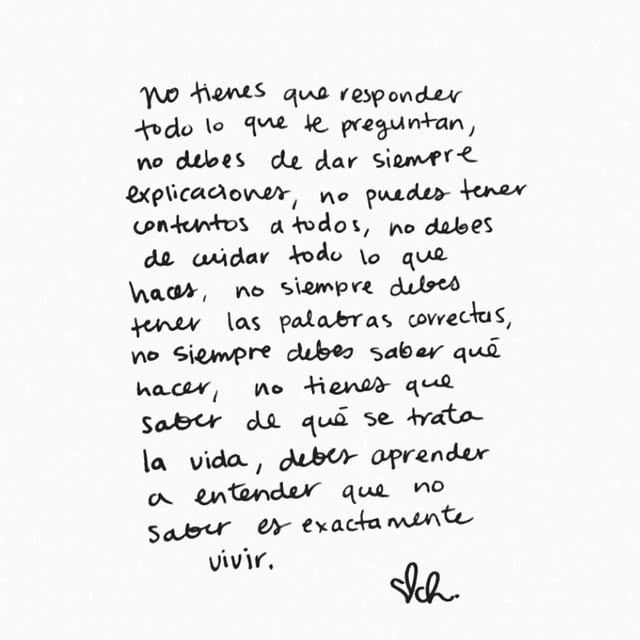 No tienes que responder
todo lo que te preguntan,
no debes de dar siempre
explicaciones, no puedes tener
contentos a todos, no debes
de cuidar todo lo que
haces, no siempre debes
tener las palabras correctas,
no siempre debes saber qué
hacer, no tienes que
saber de qué se trata
la vida, debes aprender
a entender que no
saber es exactamente
vivir.
ch.